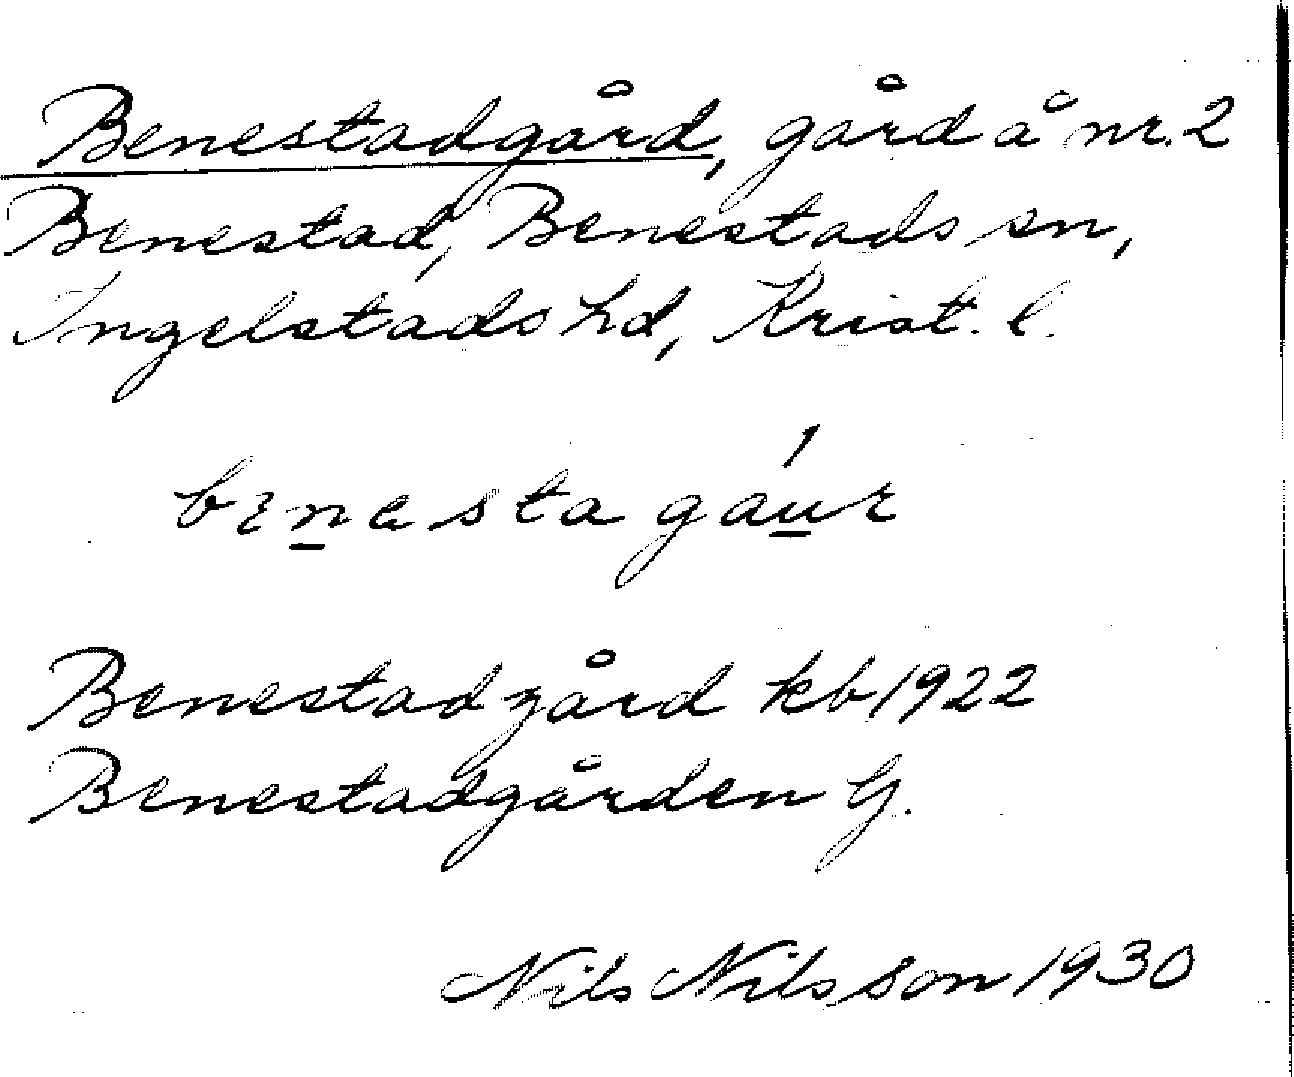 Benestadgård, gård å nr. 2
Benestad, Benestads sn,
Ingelstads hd, Krist. l.
benesta gáur
Benestadgård kb 1922
Benestadgården G.
Nils Nilsson 1930